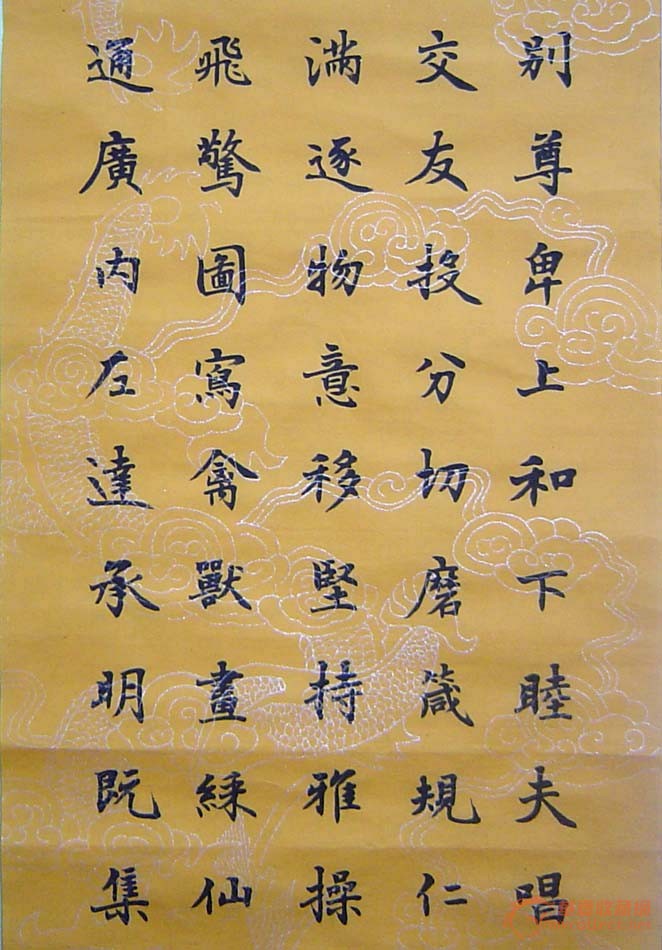 别尊卑上和下睦夫唱
交友投分切磨箴規仁
滿逐物意移堅持雅操
飛驚圖寫禽獸畫綵仙
通廣内左達承明既集